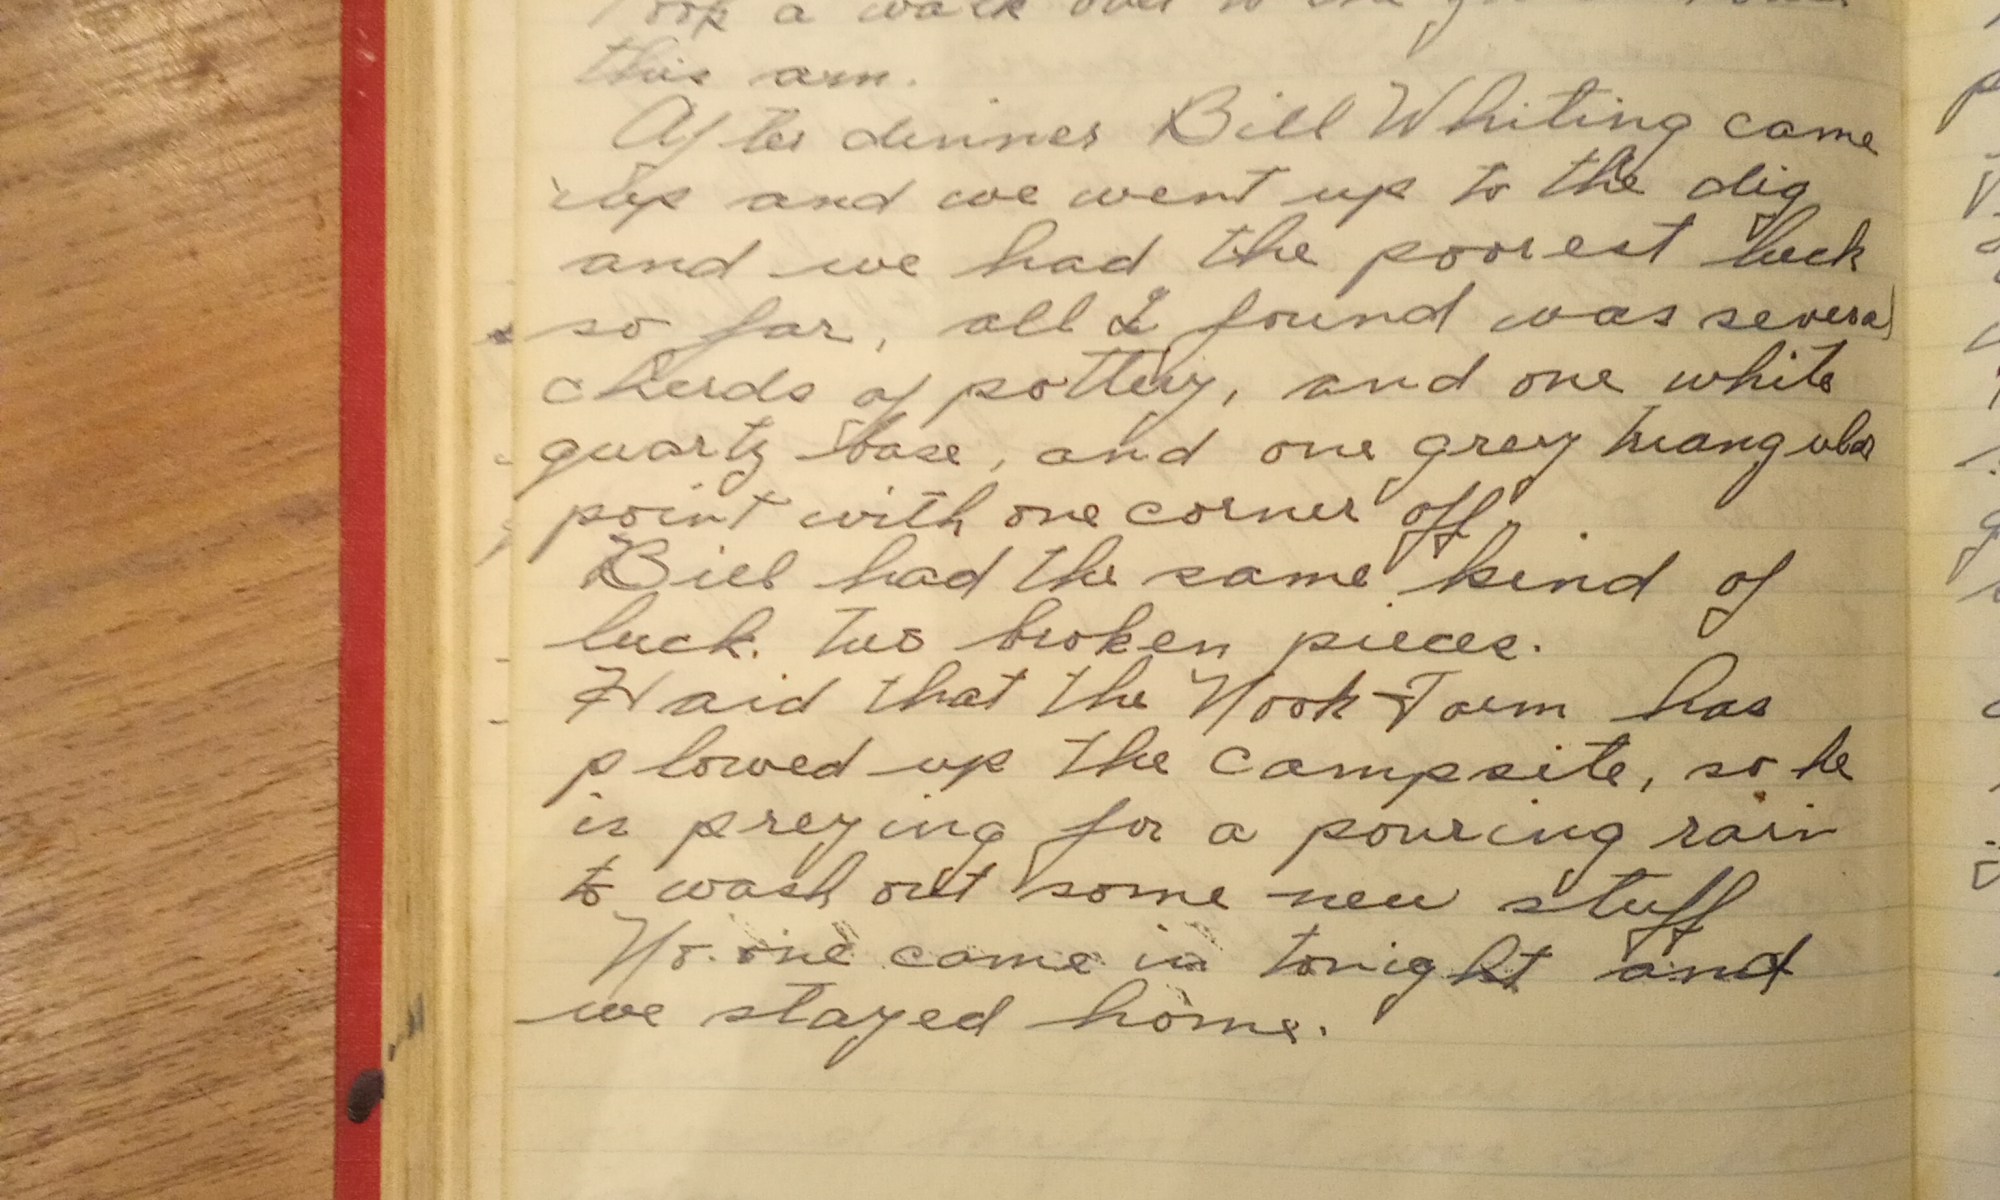 took a walk over to the
this am.
After dinner Bill Whiting came
up and we went up to the dig
and we had the poorest luck
so far, all I found was several
cherds of pottery, and one white
quartz base, and one grey triangular
point with one corner off,
Bill had the same kind of
luck. two broken pieces.
Said that the Nook Farm has
plowed up the campsite, so he
is preying for a pouring rain
to wash out some new stuff
No. one came in tonight and
we stayed home.